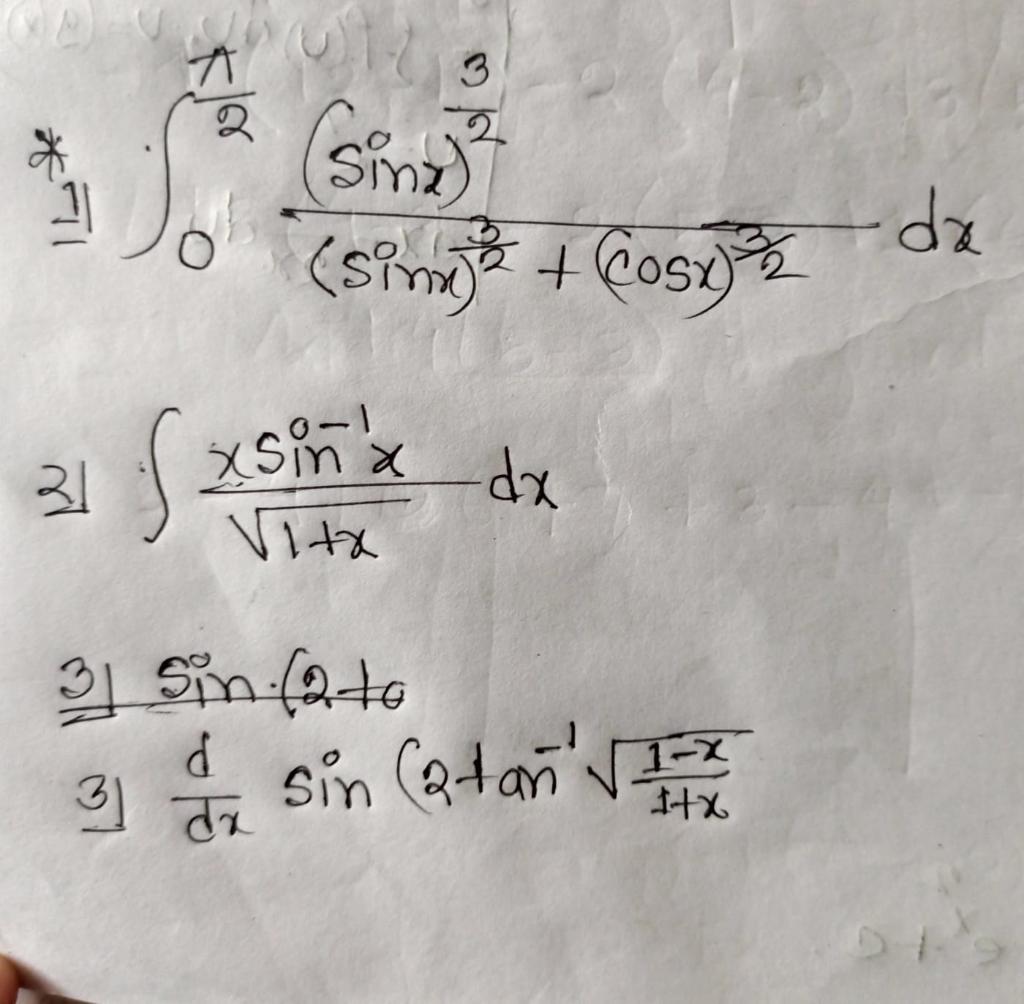 * 1] ∫₀^(π/2) (sinx)^(3/2) / ((sinx)^(3/2) + (cosx)^(3/2)) dx
2] ∫ x sin⁻¹x / √(1+x) dx
3] Sin (2 ta
3] d/dx sin (2 tan⁻¹ √((1-x)/(1+x))